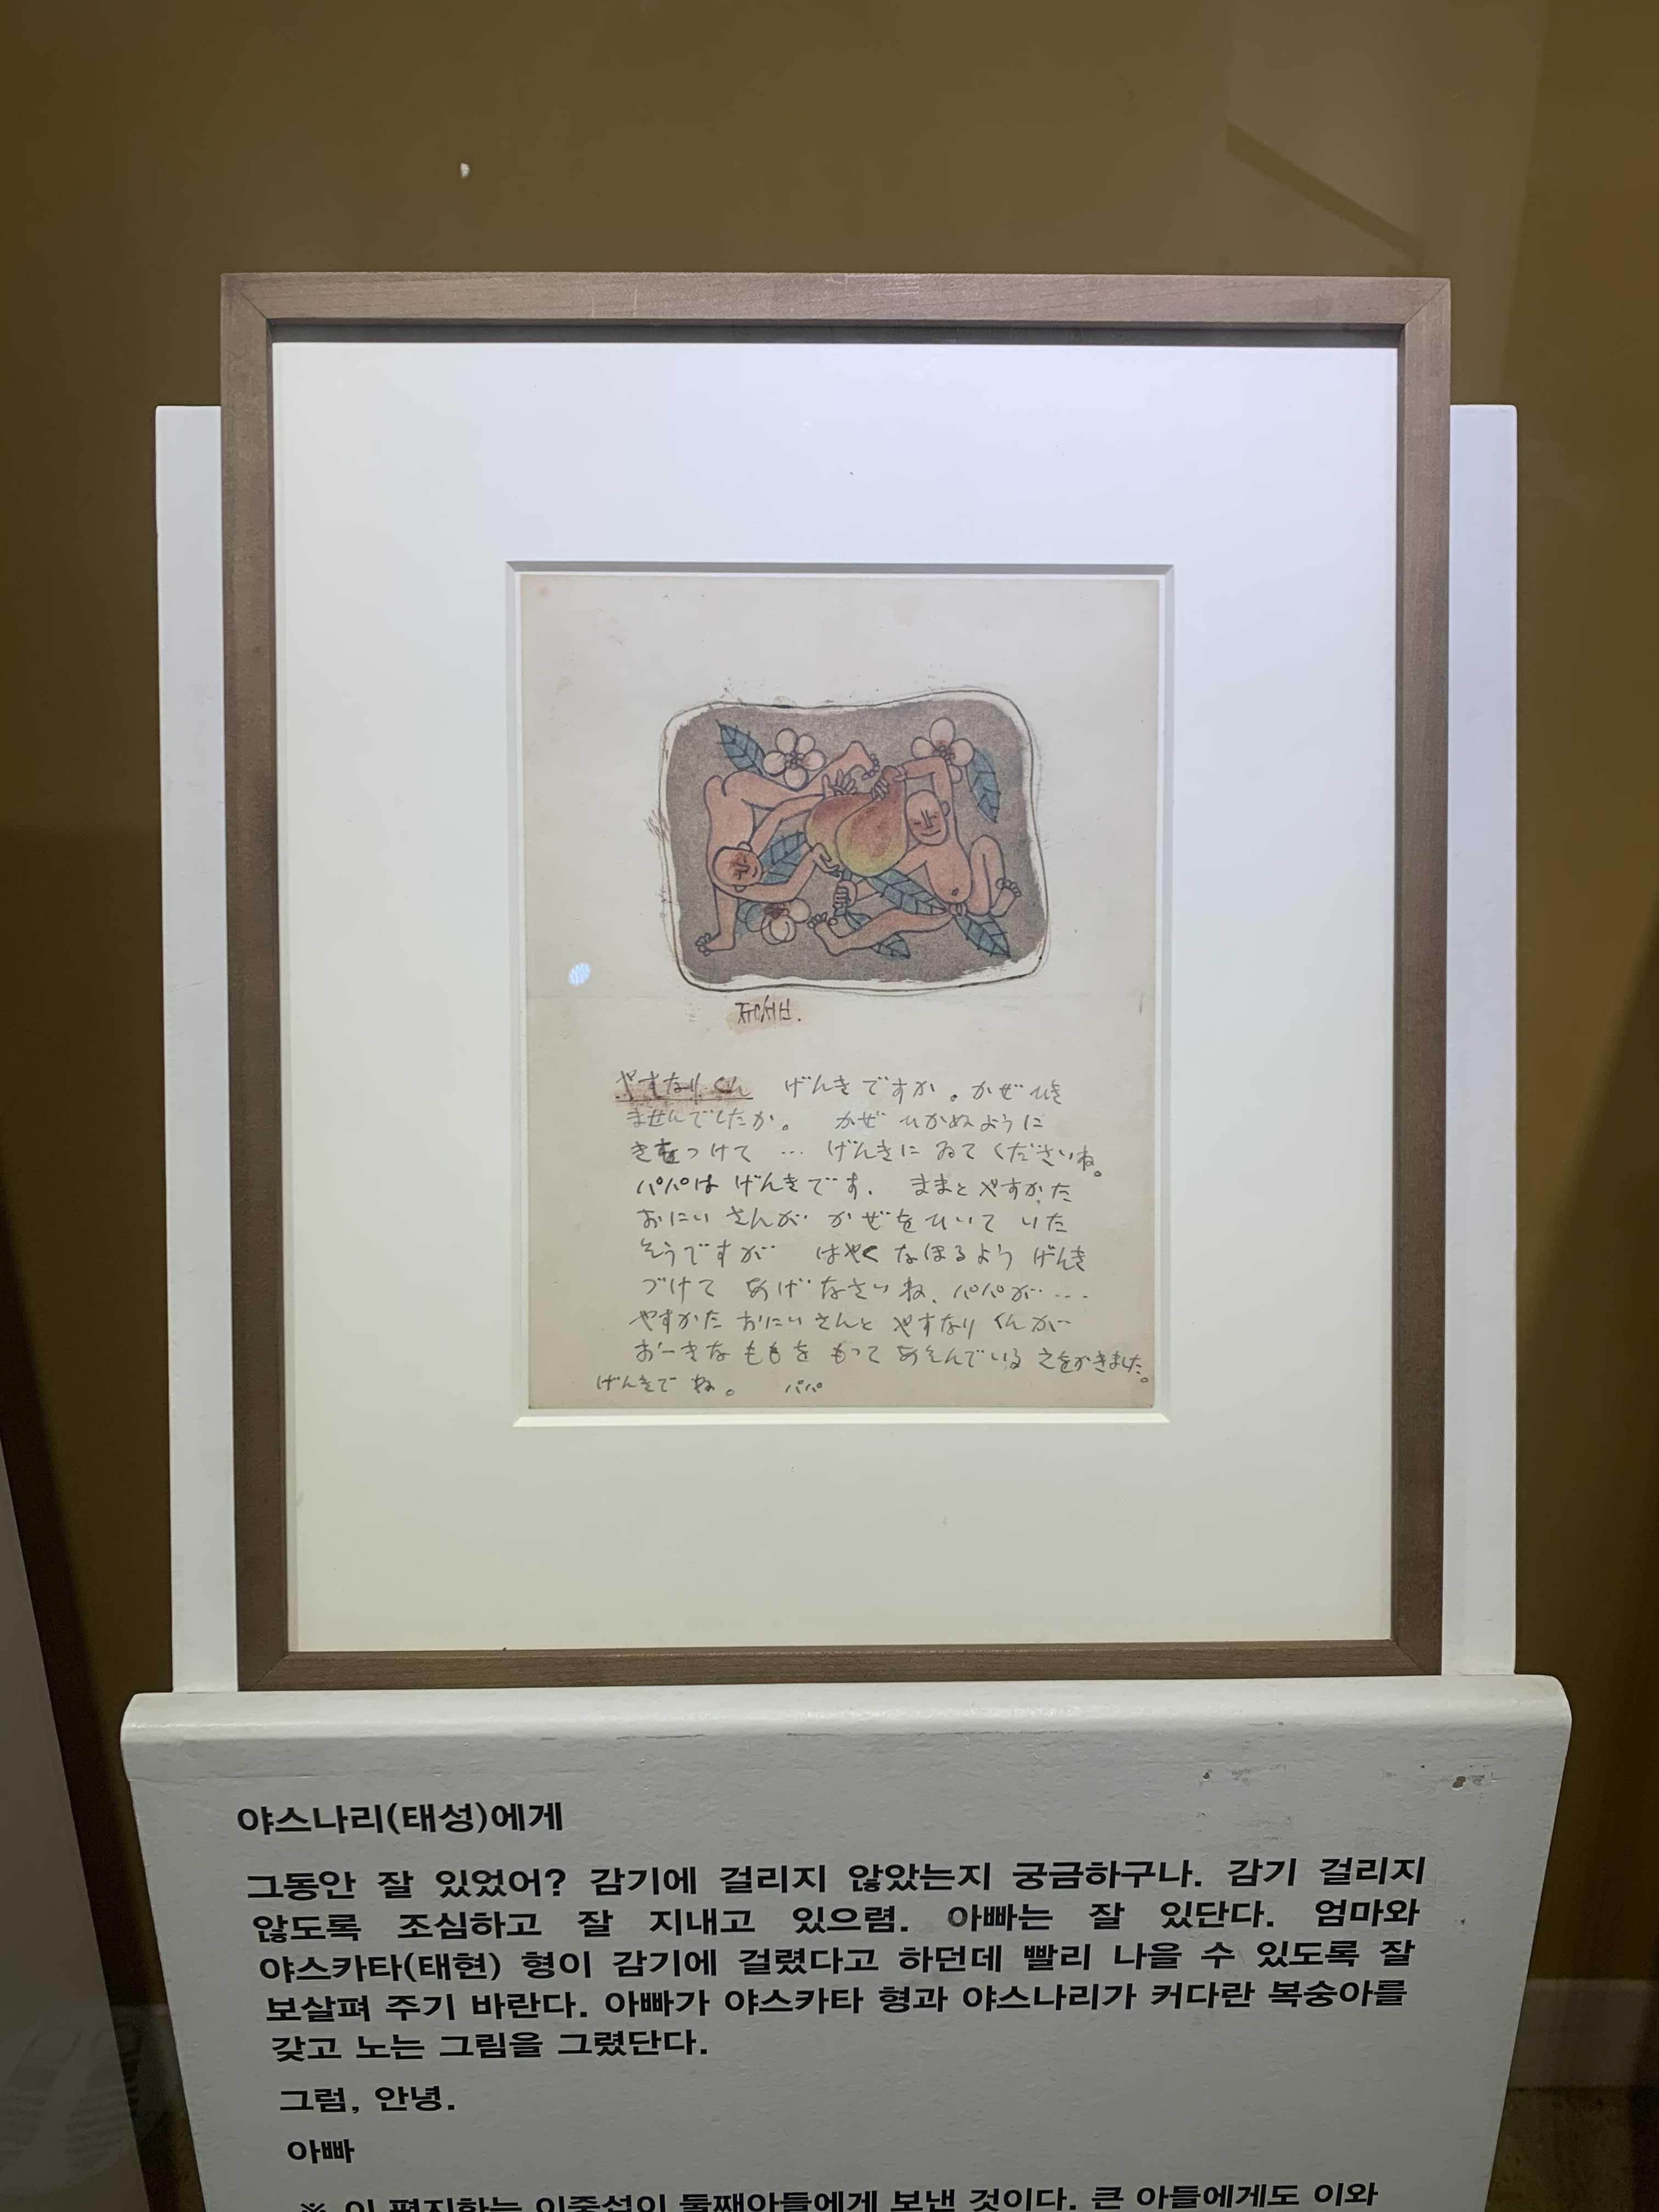 ㅈㅜㅇㅅㅓㅂ.
やすなりくん げんきですか。かぜひき
ませんでしたか。 かぜ ひかぬように
きをつけて … げんきに ゐて くださいね。
パパは げんきです. ままと やすかた
おにい さんが かぜをひいて いた
そうですが はやく なほるよう げんき
づけて あげなさいね、パパが‥‥
やすかた おにい さんと やすなり くんが
おーきな ももを もって あそんでいる えをかきました。
げんきで ね。 パパ
야스나리(태성)에게
그동안 잘 있었어? 감기에 걸리지 않았는지 궁금하구나. 감기 걸리지
않도록 조심하고 잘 지내고 있으렴. 아빠는 잘 있단다. 엄마와
야스카타(태현) 형이 감기에 걸렸다고 하던데 빨리 나을 수 있도록 잘
보살펴 주기 바란다. 아빠가 야스카타 형과 야스나리가 커다란 복숭아를
갖고 노는 그림을 그렸단다.
그럼, 안녕.
아빠
※ 이 편지화는 이중섭이 둘째아들에게 보낸 것이다. 큰 아들에게도 이와